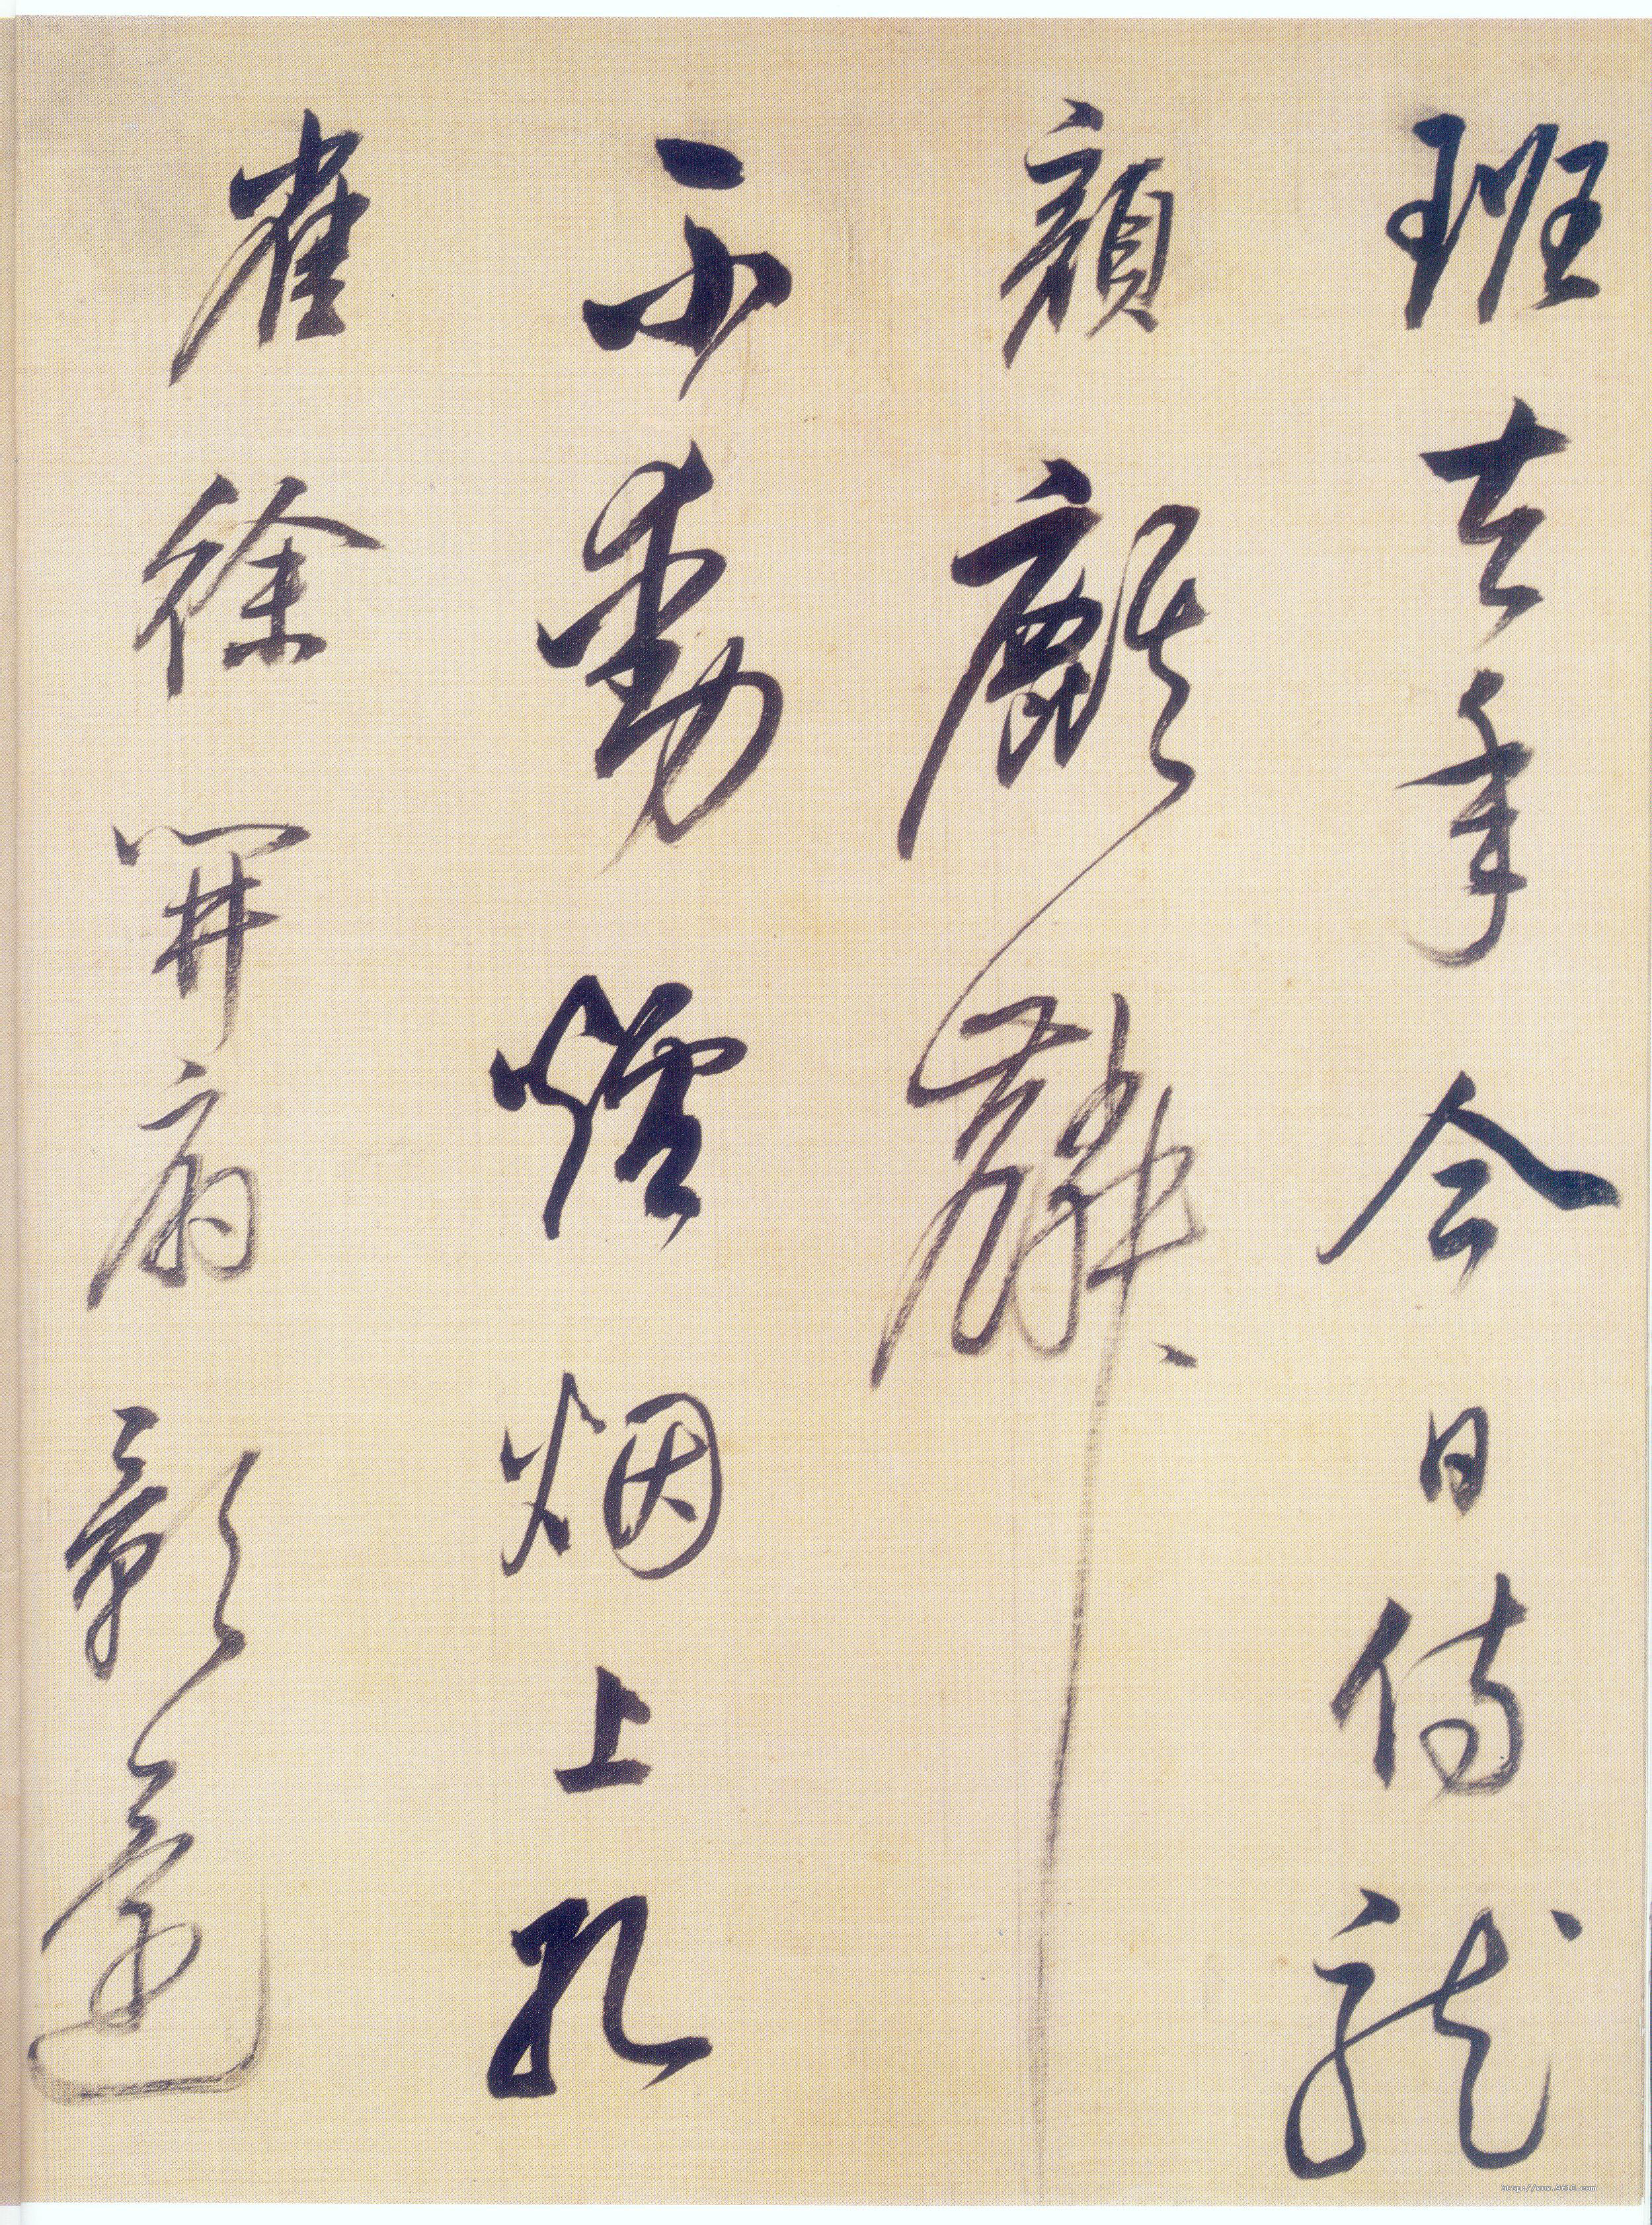 班去年今日侍龍
顏麒麟
不動爐烟上孔
雀徐開扇影還
http://www.9610.com